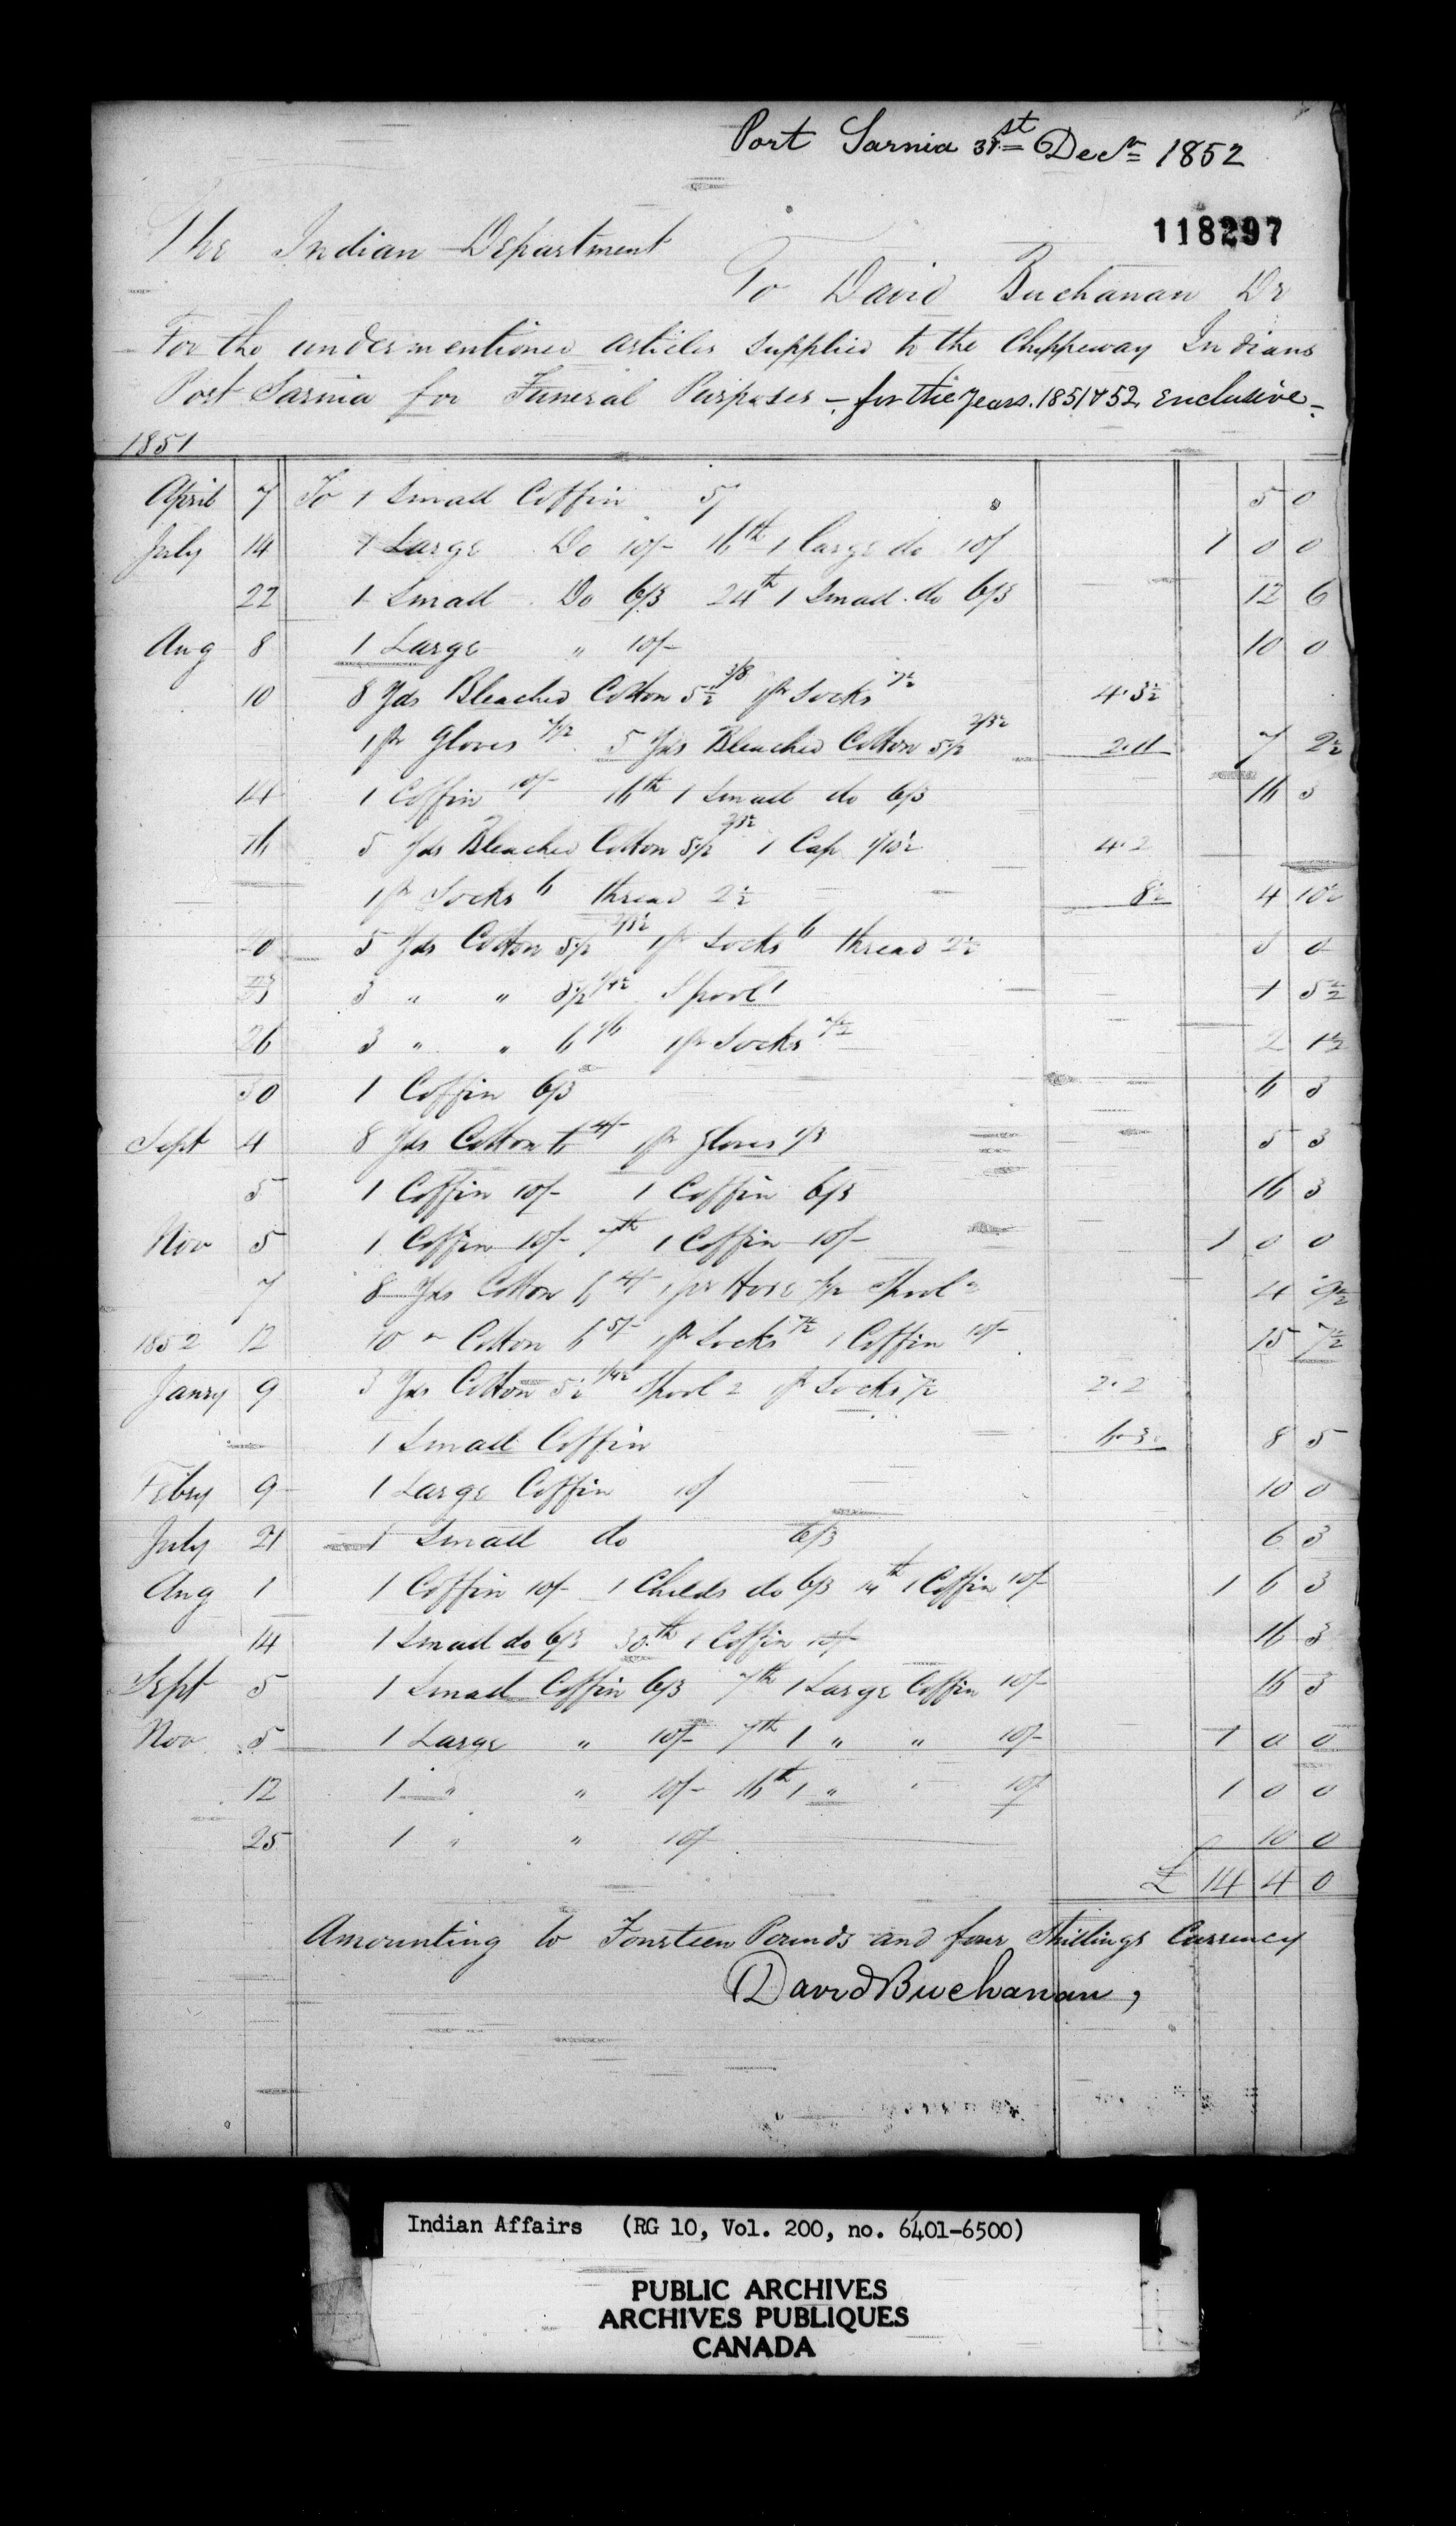 Port Sarnia 31st Decr 1852
118297
The Indian Department
To David Buchanan Dr
For the undermentioned articles supplied to the Chippeway Indians
Port Sarnia for Funeral Purposes - for the Years. 1851 & 52 enclusive -
1851
April 7 To 1 Small Coffin 5/ 5 0
July 14 1 Large Do 10/- 16th 1 large do 10/ 1 0 0
22 1 Small Do 6/3 24th 1 Small do 6/3 12 6
Aug 8 1 Large " 10/- 10 0
10 8 Yds Bleached Cotton 5½ 3/8 1 pr Socks 7½ 4.3½
1 pr Gloves 7½ 5 Yds Bleached Cotton 5½ 2/3½ 2.11 7 2½
14 1 Coffin 10/- 16th 1 Small do 6/3 16 3
16 5 Yds Bleached Cotton 5½ 2/3½ 1 Cap 1/10½ 4.2
1 pr Socks 6 thread 2½ 8½ 4 10½
20 5 Yds Cotton 5½ 2/3½ 1 pr Socks 6 thread 2½ 3 0
23 3 " " 5½ 1/4½ Spool 1 1 5½
26 3 " " 6 1/6 1 pr Socks 7½ 2 1½
30 1 Coffin 6/3 6 3
Sept 4 8 Yds Cotton 6 4/- 1 pr Gloves 1/3 5 3
5 1 Coffin 10/- 1 Coffin 6/3 16 3
Nov 5 1 Coffin 10/- 7th 1 Coffin 10/- 1 0 0
7 8 Yds Cotton 6 4/- 1 pr Hose 7½ Spool 2 4 9½
1852 12 10 " Cotton 6 5/- 1 pr Socks 7½ 1 Coffin 10/- 15 7½
Janry 9 3 Yds Cotton 5½ 1/4½ Spool 2 pr Socks 7½ 2.2
1 Small Coffin 6.3 8 5
Febry 9 1 Large Coffin 10/ 10 0
July 21 1 Small do 6/3 6 3
Aug 1 1 Coffin 10/- 1 Childs do 6/3 14th 1 Coffin 10/- 1 6 3
14 1 Small do 6/3 30th 1 Coffin 10/- 16 3
Sept 5 1 Small Coffin 6/3 7th 1 Large Coffin 10/- 16 3
Nov 5 1 Large " 10/- 7th 1 " " 10/- 1 0 0
12 1 " " 10/- 16th 1 " " 10/ 1 0 0
25 1 " " 10/- 10 0
£ 14 4 0
Amounting to Fourteen Pounds and four Shillings Currency
David Buchanan,
Indian Affairs (RG 10, Vol. 200, no. 6401-6500)
PUBLIC ARCHIVES
ARCHIVES PUBLIQUES
CANADA